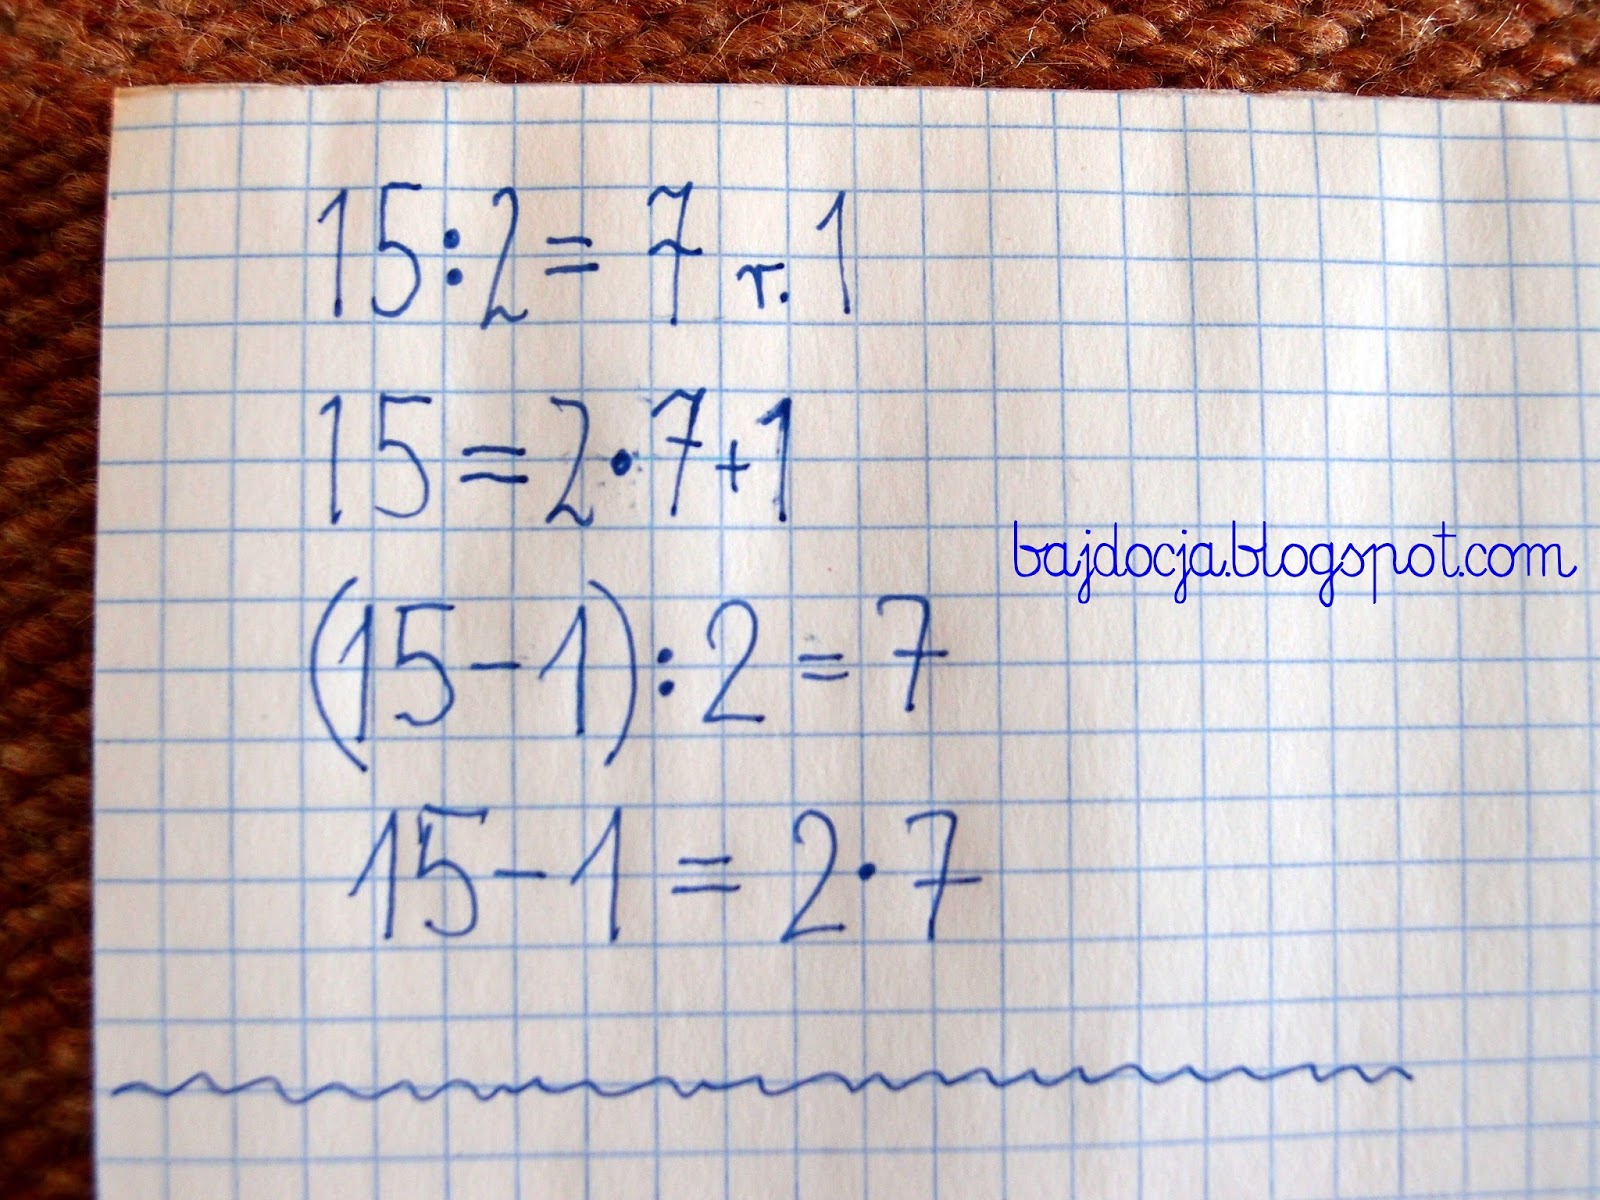 15:2 = 7 r. 1
15 = 2·7+1
bajdocja.blogspot.com
(15-1):2 = 7
15-1 = 2·7